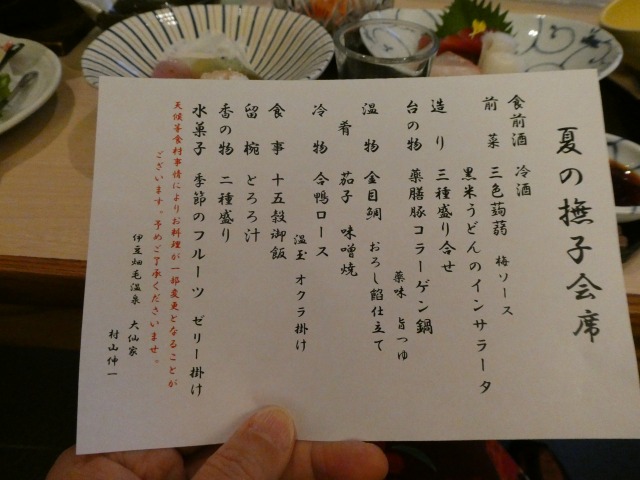 夏の撫子会席
食前酒 冷酒
前菜 三色蒟蒻 梅ソース
黒米うどんのインサラータ
造り 三種盛り合せ
台の物 薬膳豚コラーゲン鍋
薬味 旨つゆ
温物 金目鯛 おろし餡仕立て
肴 茄子 味噌焼
冷物 合鴨ロース
温玉 オクラ掛け
食事 十五穀御飯
留椀 とろろ汁
香の物 二種盛り
水菓子 季節のフルーツ ゼリー掛け
天候等食材事情によりお料理が一部変更となることが
ございます。予めご了承くださいませ。
伊豆畑毛温泉 大仙家
村山伸一